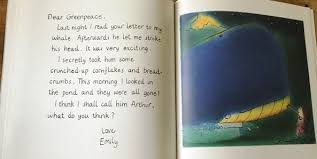 Dear Greenpeace,
Last night I read your letter to my
whale. Afterwards he let me stroke
his head. It was very exciting.
I secretly took him some
crunched-up cornflakes and bread-
crumbs. This morning I looked in
the pond and they were all gone!
I think I shall call him Arthur,
what do you think?
Love
Emily